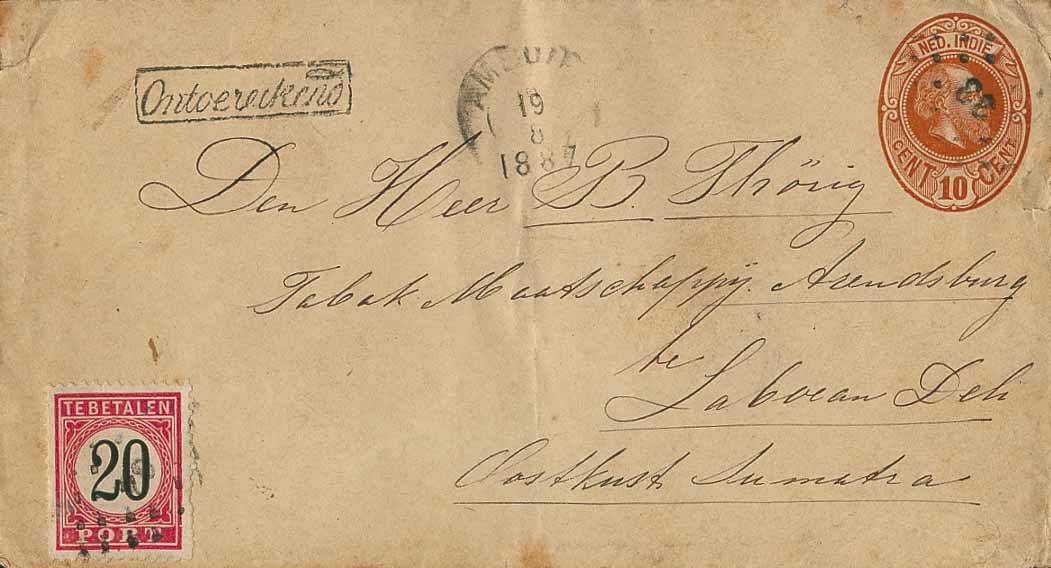 NED. INDIE
CENT 10 CENT
33
Ontoereikend
19
8
1887
Den Heer B. Thörig
Tabak Maatschappij Arendsburg
te
Laboean Deli
Oostkust Sumatra
TE BETALEN
20
PORT